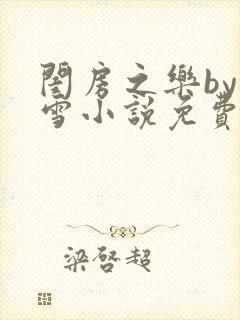 閨房之樂by
雪小說免費
梁啓超